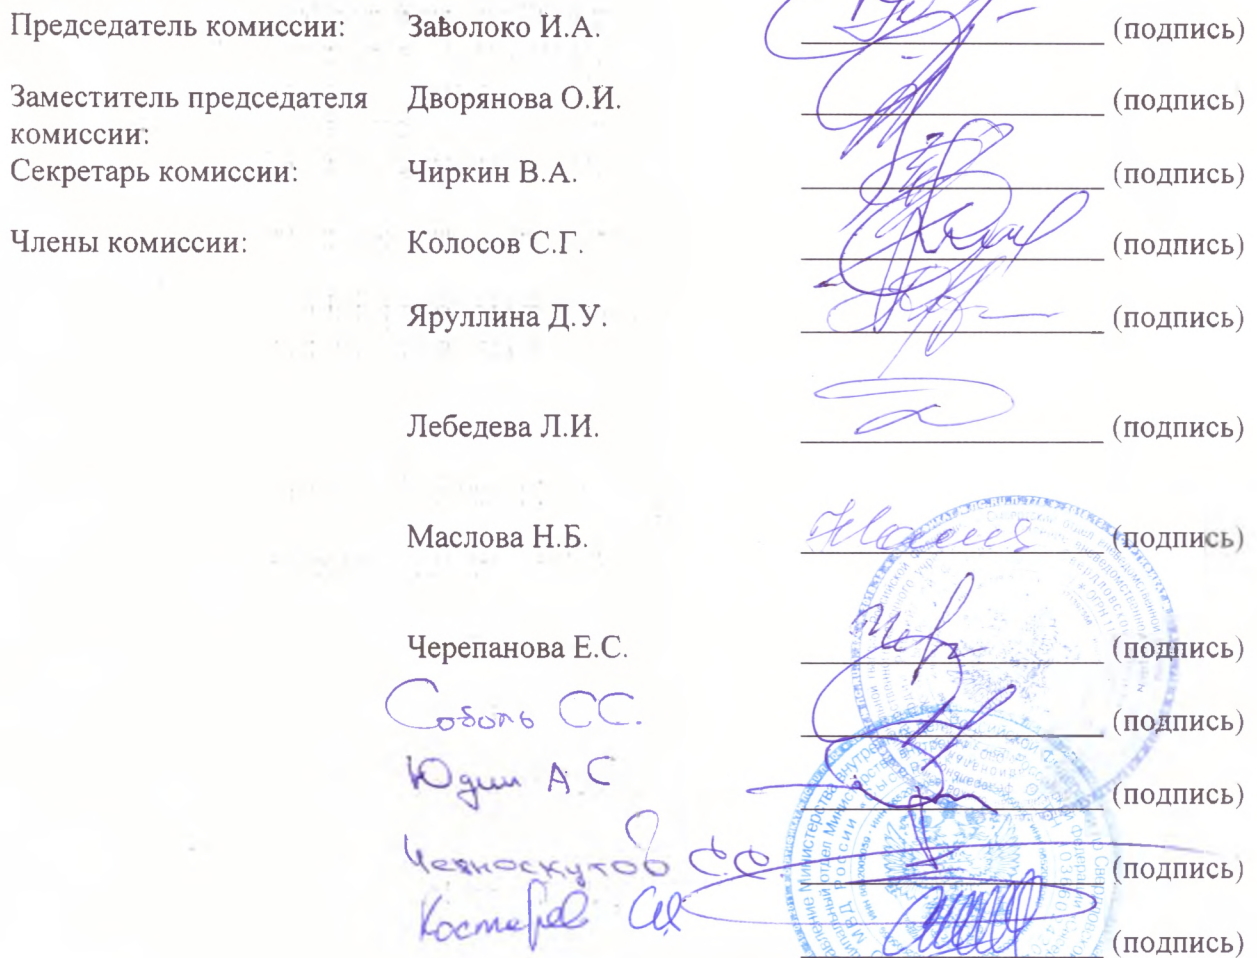 Председатель комиссии: Заволоко И.А. (подпись)
Заместитель председателя Дворянова О.И. (подпись)
комиссии:
Секретарь комиссии: Чиркин В.А. (подпись)
Члены комиссии: Колосов С.Г. (подпись)
Яруллина Д.У. (подпись)
Лебедева Л.И. (подпись)
Маслова Н.Б. (подпись)
Черепанова Е.С. (подпись)
Соболь С.С. (подпись)
Юдин А С (подпись)
Черноскутов С.С. (подпись)
Костарев (подпись)